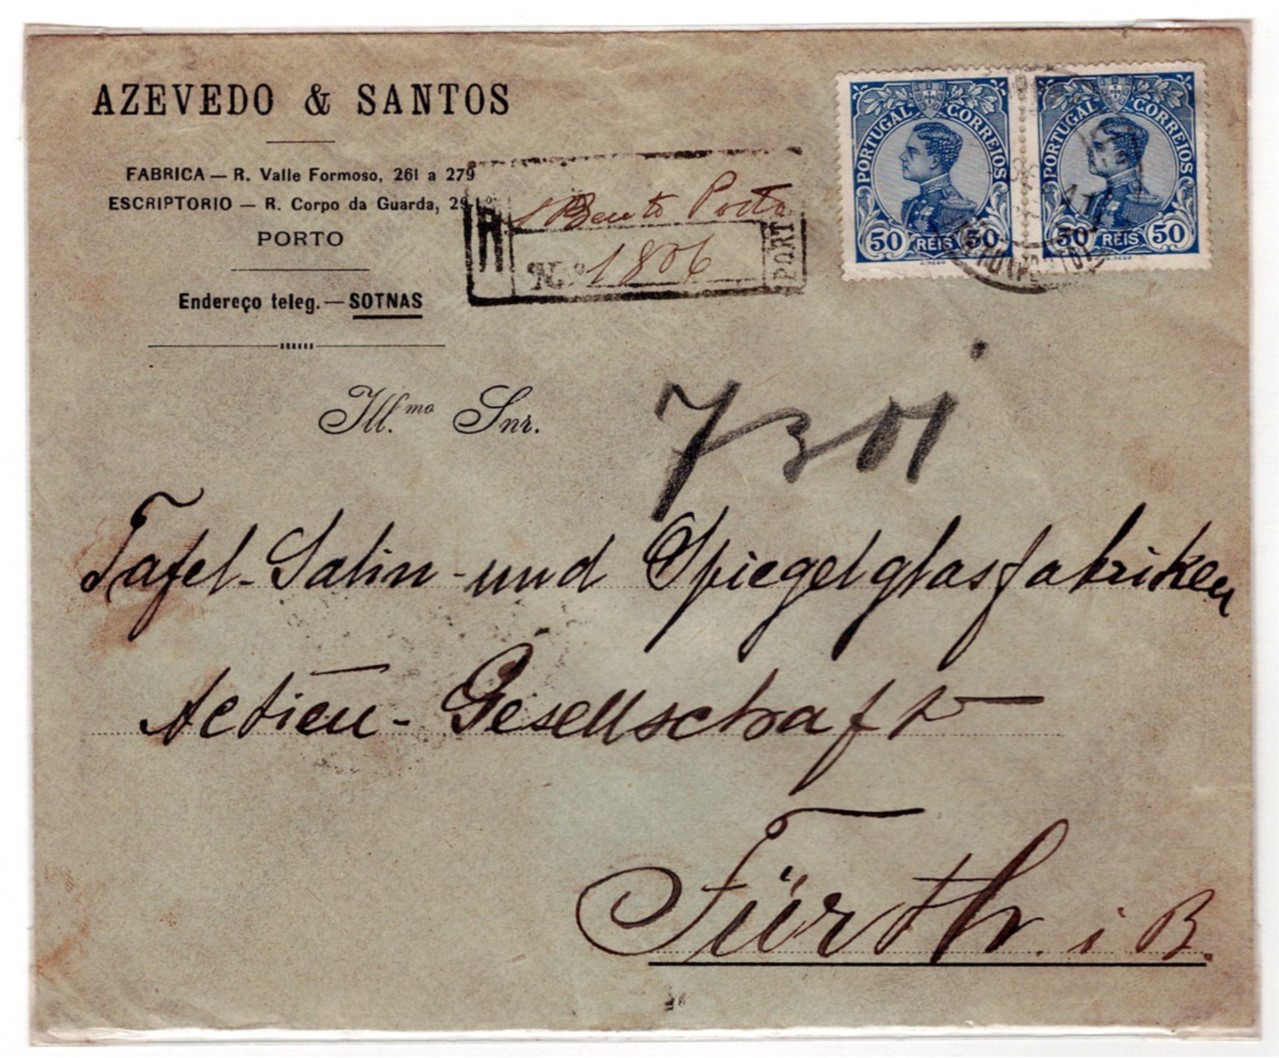 AZEVEDO & SANTOS
FABRICA — R. Valle Formoso, 261 a 279
ESCRIPTORIO — R. Corpo da Guarda, 29 1.º
PORTO
Endereço teleg.—SOTNAS
R
S Bento Porto
N.º 1806
PORTO
PORTUGAL CORREIOS
50 REIS 50
PORTUGAL CORREIOS
50 REIS 50
Ill.mo Snr.
Tafel-Salin-und Spiegelglasfabriken
Actien-Gesellschaft
Fürth i B.